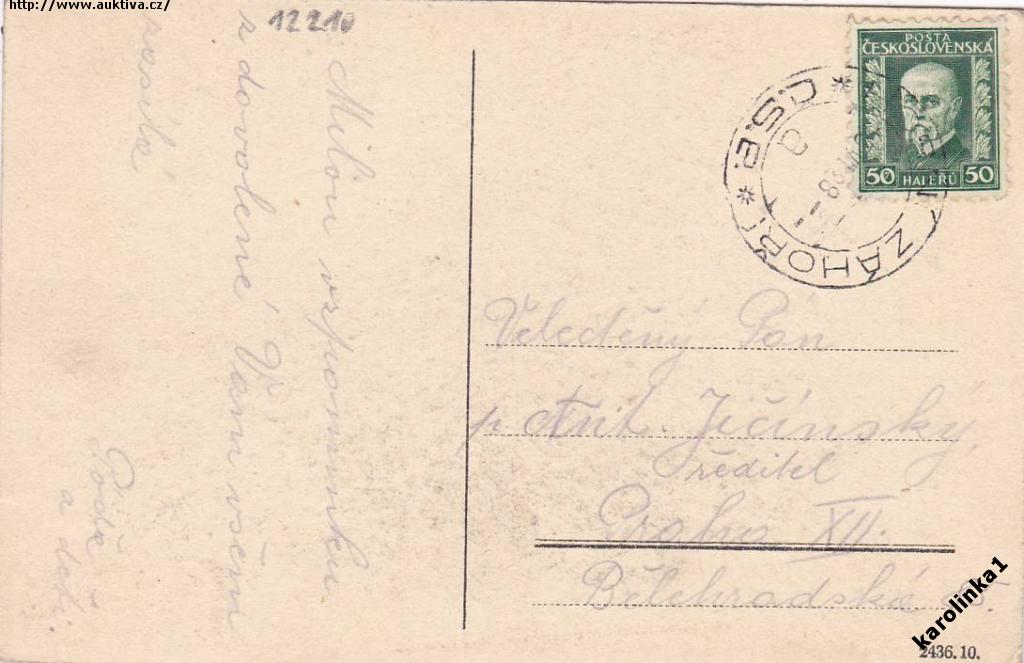 http://www.auktiva.cz/
12210
Milou vzpomínku
z dovolené Vám všem
zasílá
a děti.
POŠTA
ČESKOSLOVENSKÁ
50 HALÉŘŮ 50
ZÁHOŘÍ
ČSR
Velectěný Pán
p. Ant. Jičínský,
ředitel
Praha XII.
Bělehradská
karolinka1
2436.10.